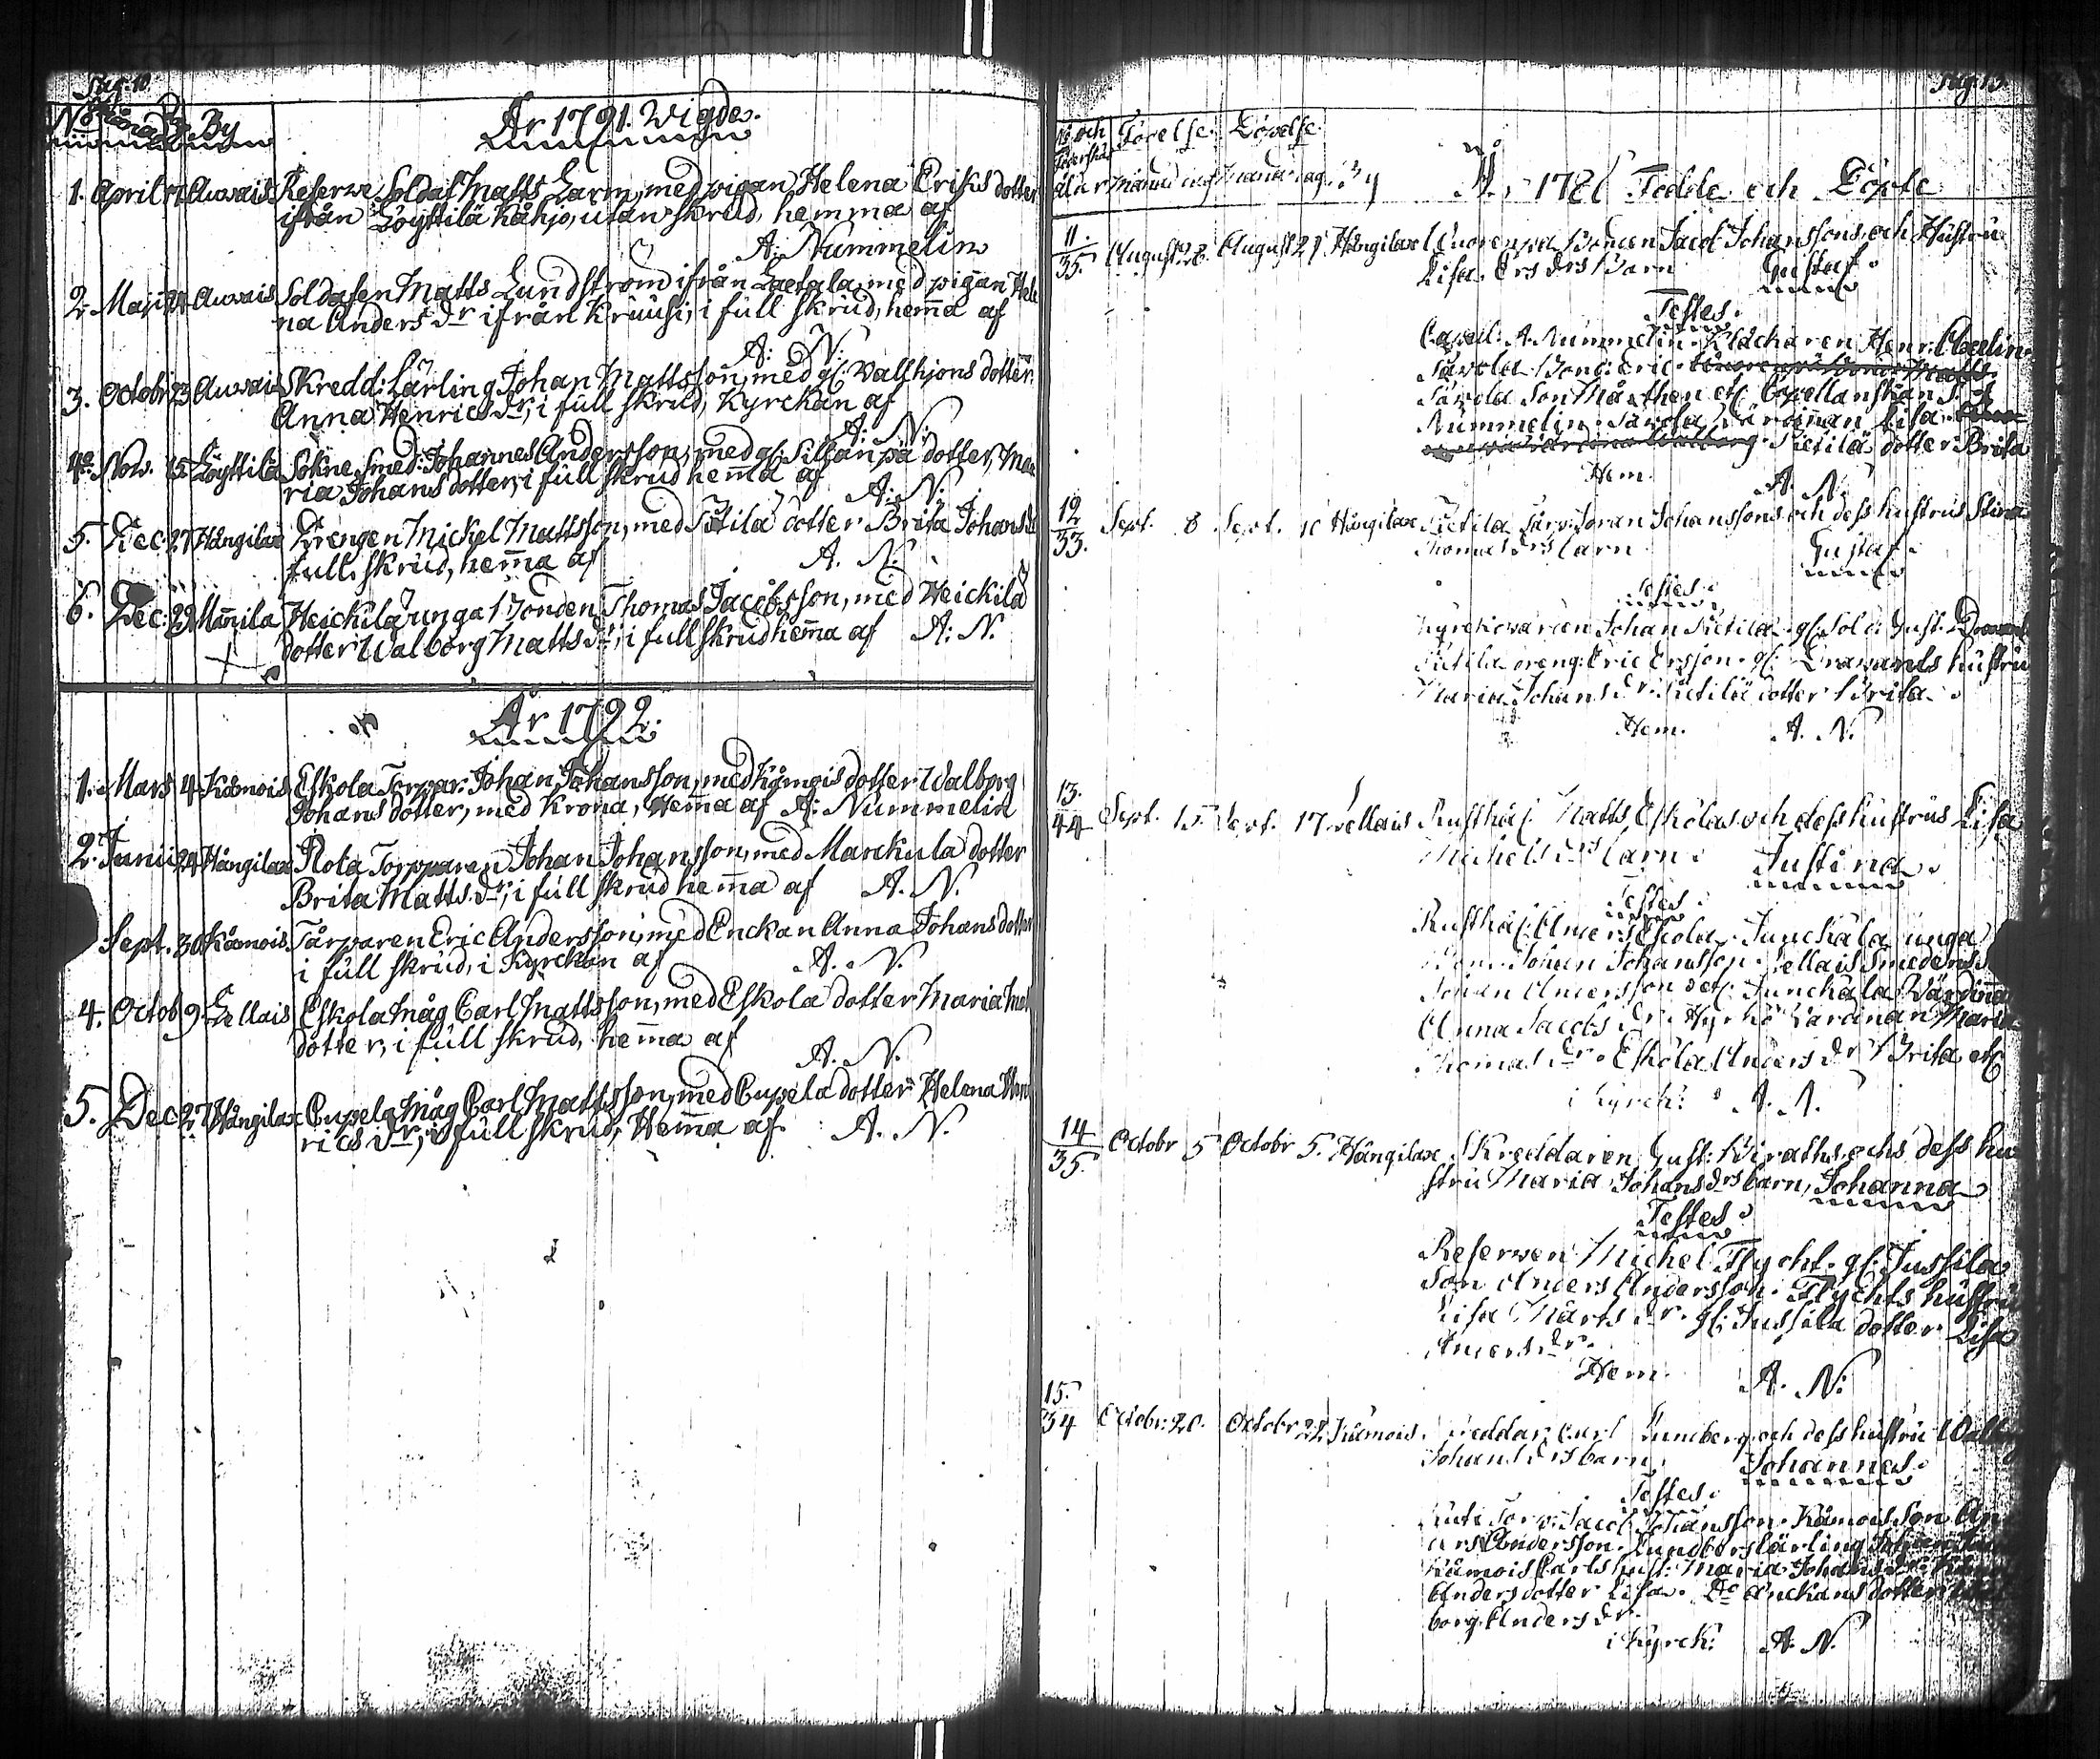 Pag. 10
N:o Månad Dag By
År 1791. Wigde.
1. April 17 Auvais Reserwe Soldat Matts Larm, med pigan Helena Eriks dotter
ifrån Löyttilä Kåhjo, utan skrud, hemma af
A: Nummelin
2. Maji 24 Auvais Soldaten Matts Lundström ifrån Laetala, med pigan Hele
na Anders dr ifrån Kruusi, i full skrud, hema af
A: N:
3. Octobr 23 Auvais Skredd: Lärling Johan Mattsson, med gl. Vallhjons dotter
Anna Henrics dr, i full skrud, Kyrckan af
A. N.
4. Nov. 15 Löyttilä Sokne Smed: Johannes Andersson, med gl: Sillanpä dotter, Ma
ria Johans dotter, i full skrud hema af
A. N.
5. Dec. 27 Hångilax Drengen Mickel Mattsson, med Pietilä dotter Brita Johans dr
full skrud, hema af A. N.
6. Dec: 29 Mannila Heickilä unga Bonden Thomas Jacobsson, med Heickilä
dotter Walborg Matts dr, i full skrud hema af A: N.
År 1792.
1. Mars 4 Kåmois Eskola Torpar: Johan Johansson, med Kåmois dotter Walborg
Johans dotter, med Krona, Hema af A: Nummelin
2. Junii 24 Hångilax Rota Torpparen Johan Johansson, med Marckula dotter
Brita Matts dr, i full skrud hema af A. N.
Sept. 30 Kåmois Tårparen Eric Andersson, med Enckan Anna Johans dotter
i full skrud, i Kyrckan af A. N.
4. Octob 9 Lellais Eskola Måg Carl Mattsson, med Eskola dotter Maria Mat
dotter, i full skrud, hema af
A. N.
5. Dec 27 Hångilax Cupela Måg Carl Mattsson, med Cupela dotter Helena Hen
rics dr, i full skrud, Hema af A. N.
Pag. 13.
N:o och Föderskans ålder Födelse Månad dag Döpelse Månad dag By
År 1786 Födde och Döpte
11. 35. August 26. August 27 Hångilax Bonden Jacob Johanssons och Hustru
Lisa Ers drs Barn Gustaf.
Testes.
Capell: A. Nummelin. Klåckaren Henr: Abelin.
Savola Bond: Eric
Savola Son Mårthen etc Capellanskan
Nummelin. Savola Värdinnan Lisa
Pietilä dotter Brita
Hem. A. N.
12 33. Sept. 8 Sept. 10 Hångilax Pietilä Johan Johanssons och dess hustrus Stina
Thomas drs barn Gustaf.
Testes.
Kyrckovärden Johan Pietilä. gl. Sold: Gust.
Pietilä dreng: Eric Ersson. gl: Drawants hustru
Maria Johans dr. Pietilä dotter Brita.
Hem. A. N.
13. 44 Sept. 15 Sept. 17 Lellais Rusthål. Matts Eskolas och dess hustrus Lisa
Michels drs barn. Justina.
Testes.
Rusthål: Anders Eskola. Junckala unga
Bond. Johan Johansson. Lellais Smedens
Johan Andersson etc. Junckala Värdinna
Anna Jacobs dr. Hyrkö Värdinan Maria
Thomas dr. Eskola Anders dr Brita etc
i Kyrck: A. N.
14 35. Octobr 5 Octobr 5. Hångilax Skreddaren Gust: Wiraths och dess hu
stru Maria Johans drs barn, Johanna
Testes.
Reserven Michel Flycht. gl: Jussila
Son Anders Andersson. Flychts hustru
Lisa Mårts dr. gl: Jussila dotter Lisa
Anders dr.
Hem. A. N:
15. 34 Octobr: 20. Octobr 22. Kåmois Skreddar: Carl Lundberg och dess hustru Walb
Johans drs barn. Johannes.
Testes.
Torp: Jacob Johansson. Kåmois Son An
ders Andersson. Lundbergs lärling Johan
Kåmois Carls hust: Maria Johans dr.
Anders dotter Lisa. Do Anckans dotter
borg Anders dr.
i Kyrck: A. N.